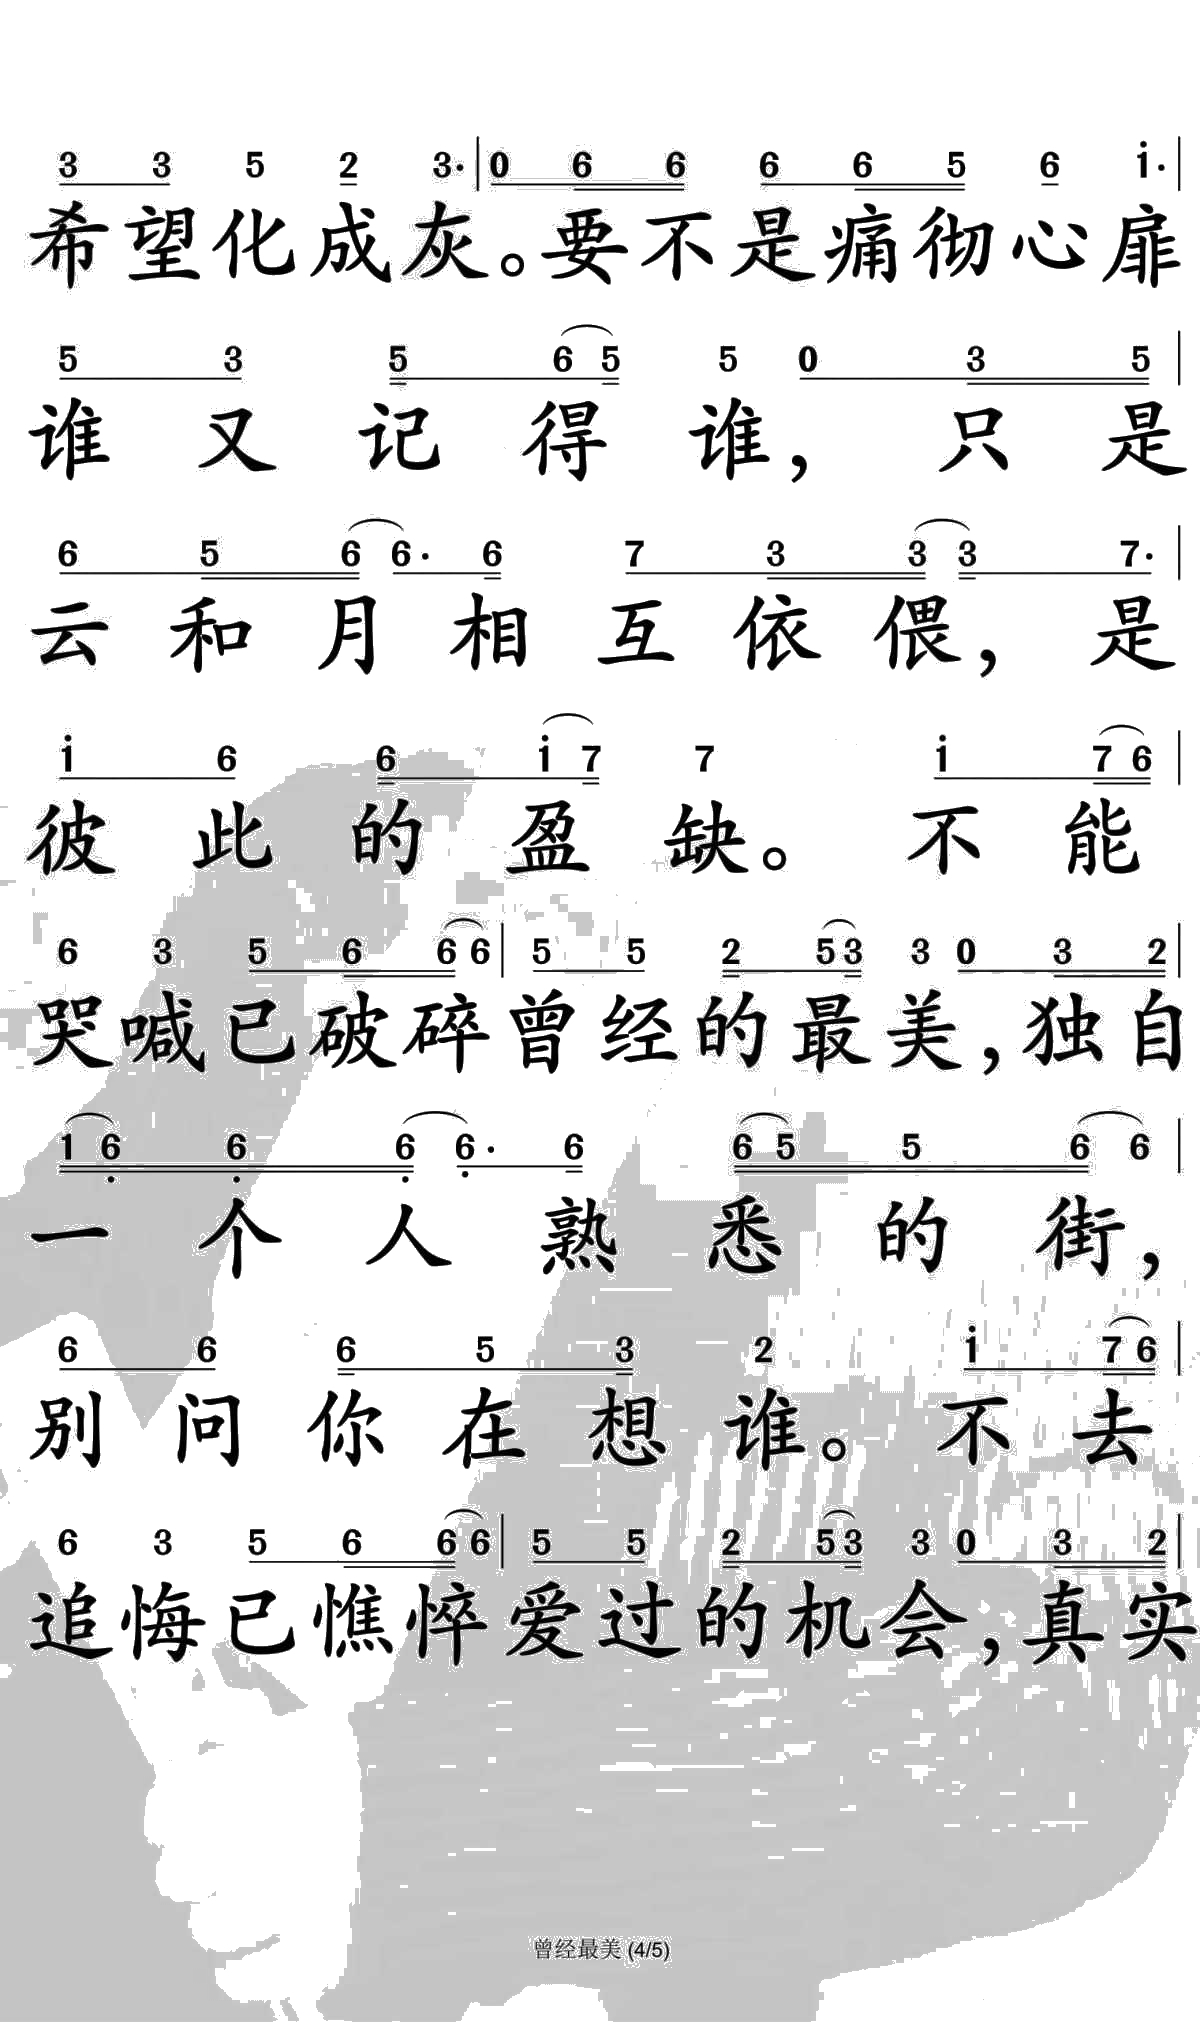 3 3 5 2 3· | 0 6 6 6 6 5 6 i· |
希望化成灰。要不是痛彻心扉
5 3 5 6 5 5 0 3 5 |
谁又记得谁，只是
6 5 6 6· 6 7 3 3 3 7· |
云和月相互依偎，是
i 6 6 i 7 7 i 7 6 |
彼此的盈缺。不能
6 3 5 6 6 6 | 5 5 2 5 3 3 0 3 2 |
哭喊已破碎曾经的最美，独自
1 6 6 6 6· 6 6 5 5 6 6 |
一个人熟悉的街，
6 6 6 5 3 2 i 7 6 |
别问你在想谁。不去
6 3 5 6 6 6 | 5 5 2 5 3 3 0 3 2 |
追悔已憔悴爱过的机会，真实
曾经最美 (4/5)